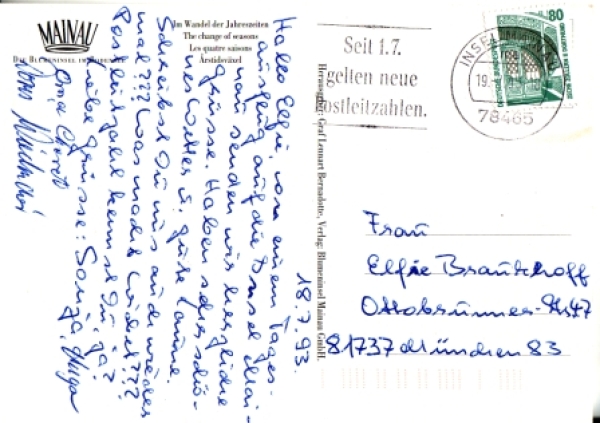 MAINAU
DIE BLUMENINSEL IM BODENSEE
Im Wandel der Jahreszeiten
The change of seasons
Les quatre saisons
Årstidsväxel
Herausgeber: Graf Lennart Bernadotte, Verlag: Blumeninsel Mainau GmbH.
18.7.93
Hallo Elfie, von einem Tages-
ausflug auf die Insel Mai-
nau senden wir herzliche
Grüsse. Haben sehr schö-
nes Wetter u. gute Laune.
Schreibst Du uns auch wieder
mal??? Was macht
Postleitzahl kennst Du, ja?
Liebe Grüsse: Sonja, Helga
Seit 1.7.
gelten neue
Postleitzahlen.
INSEL MAINAU
19.
78465
80
Frau
Elfie Brautkhoff
Ottobrunner-Str 47
81737 München 83